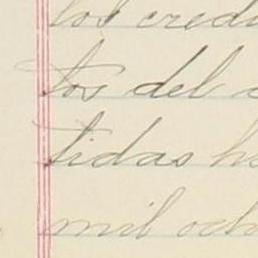 los credi
tos del a
tidas ha
mil och